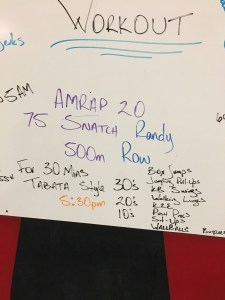 WORKOUT
erks
5AM
AMRAP 20
75 SNATCH Randy
500m Row
For 30 Mins
TABATA Style
5:30pm
30's
20's
10's
Box Jumps
Jumping Pull-Ups
KB Swings
Walking Lunges
K2E
Sit-Ups
WALLBALLS